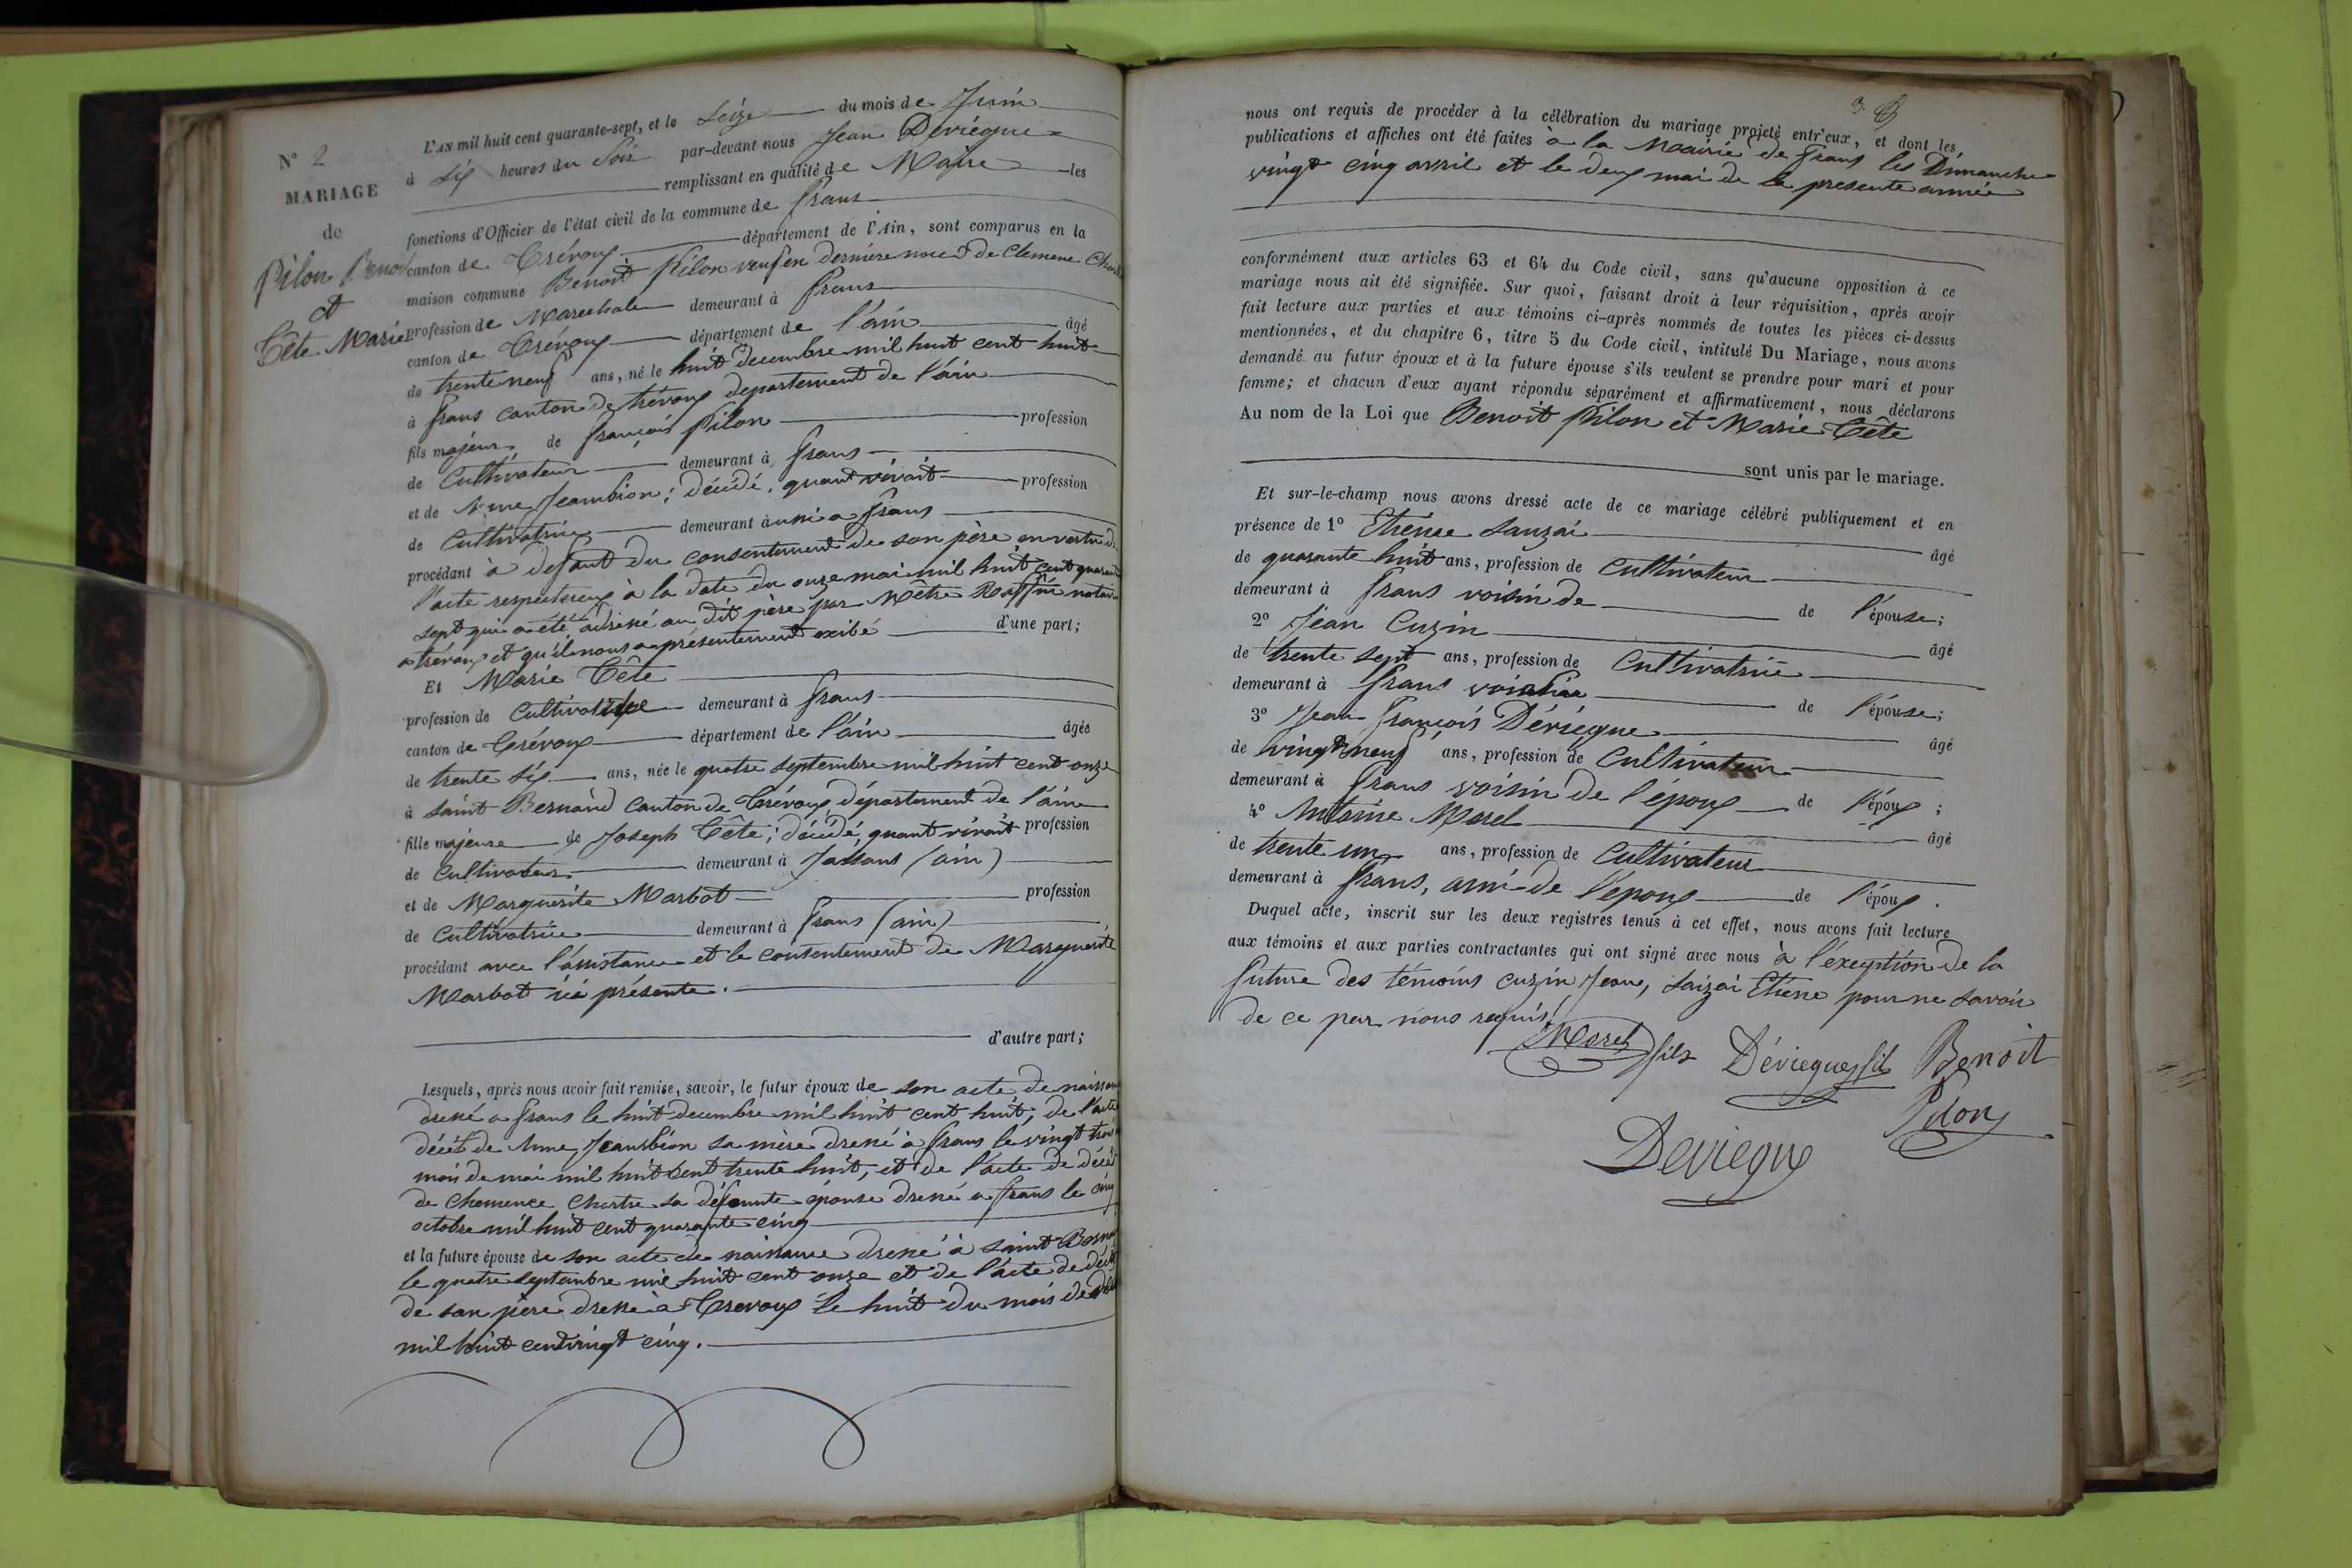 N° 2
MARIAGE
de
Pilon Benoit
et
Cête Marie
L'AN mil huit cent quarante-sept, et le Seize du mois de Juin
à six heures du Soir par-devant nous Jean Deviégue
remplissant en qualité de Maire les
fonctions d'Officier de l'état civil de la commune de frans
canton de Trévoux département de l'Ain, sont comparus en la
maison commune Benoit Pilon veuf en dernière noce de Clemence
profession de Marechale demeurant à frans
canton de Trévoux département de l'ain âgé
de trente neuf ans, né le huit decembre mil huit cent huit
à frans canton de trévoux departement de l'ain
fils majeur de françois Pilon profession
de Cultivateur demeurant à frans
et de Anne Jeambion; décédé, quant vivait profession
de Cultivatrice demeurant aussi a frans
procédant à defaut du consentement de son père en vertu de
l'acte respectueux à la date du onze mai mil huit cent quarante
sept qui a été adressé au dit père par Mêtre Raffin notaire
a trévoux et qu'il nous a présentement exibé d'une part;
Et Marie Cête
profession de Cultivatrice demeurant à frans
canton de Trévoux département de l'ain âgée
de trente six ans, née le quatre septembre mil huit cent onze
à saint Bernard Canton de Trévoux département de l'ain
fille majeure de Joseph Cête; décédé, quant vivait profession
de Cultivateur demeurant à Jassans (ain)
et de Marguerite Marbot profession
de Cultivatrice demeurant à frans (ain)
procédant avec l'assistance et le consentement de Marguerite
Marbot ici présente.
d'autre part;
Lesquels, après nous avoir fait remise, savoir, le futur époux de son acte de naissance
dressé a frans le huit decembre mil huit cent huit; de l'acte
décès de Anne Jeanbion sa mère dressé à frans le vingt trois
mois de mai mil huit cent trente huit, et de l'acte de décès
de Chemence Chartre sa défunte épouse dressé a frans le cinq
octobre mil huit cent quarante cinq
et la future épouse de son acte de naissance dressé à saint Bernard
le quatre septembre mil huit cent onze et de l'acte de décès
de son père dressé à Trevoux le huit du mois de
mil huit cent vingt cinq.
3
nous ont requis de procéder à la célébration du mariage projeté entr'eux, et dont les
publications et affiches ont été faites à la Mairie de frans les Dimanche
vingt cinq avril et le deux mai de la presente année
conformément aux articles 63 et 64 du Code civil, sans qu'aucune opposition à ce
mariage nous ait été signifiée. Sur quoi, faisant droit à leur réquisition, après avoir
fait lecture aux parties et aux témoins ci-après nommés de toutes les pièces ci-dessus
mentionnées, et du chapitre 6, titre 5 du Code civil, intitulé Du Mariage, nous avons
demandé au futur époux et à la future épouse s'ils veulent se prendre pour mari et pour
femme; et chacun d'eux ayant répondu séparément et affirmativement, nous déclarons
Au nom de la Loi que Benoit Pilon et Marie Cête
sont unis par le mariage.
Et sur-le-champ nous avons dressé acte de ce mariage célébré publiquement et en
présence de 1° Etienne Sauzai âgé
de quarante huit ans, profession de Cultivateur
demeurant à frans voisin de de l'épouse;
2° Jean Cuzin âgé
de trente sept ans, profession de Cultivatrice
demeurant à frans de l'épouse;
3° Jean françois Dériégue âgé
de vingt neuf ans, profession de Cultivateur
demeurant à frans voisin de l'époux de l'époux;
4° Antoine Morel âgé
de trente un ans, profession de Cultivateur
demeurant à frans, ami de l'époux de l'époux.
Duquel acte, inscrit sur les deux registres tenus à cet effet, nous avons fait lecture
aux témoins et aux parties contractantes qui ont signé avec nous à l'éxeption de la
future des témoins cuzin Jean, Saizai Etiene pour ne savoir
de ce par nous requis.
Morel fils Dévieguefils Benoit
Pilon
Deviegue